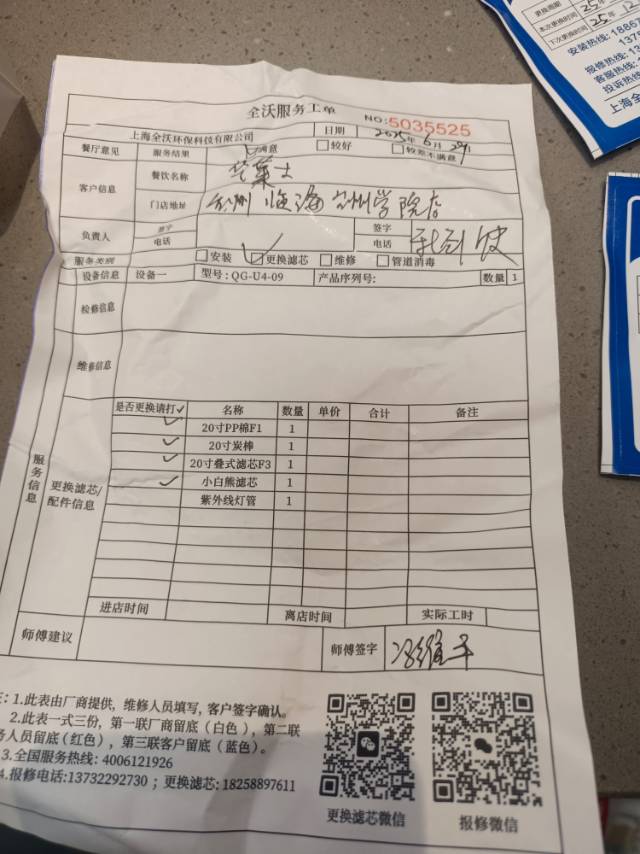 全沃服务工单
NO:5035525
上海全沃环保科技有限公司 日期 2025年6月29日
餐厅意见 服务结果 满意 较好 较差不满意
客户信息 餐饮名称
门店地址 台州 临海 台州学院店
负责人 签字 电话 签字 电话
服务类别 安装 更换滤芯 维修 管道消毒
设备信息 设备一 型号:QG-U4-09 产品序列号: 数量 1
检修信息
维修信息
服务信息
更换滤芯/配件信息
是否更换请打✓ 名称 数量 单价 合计 备注
✓ 20寸PP棉F1 1
✓ 20寸炭棒 1
✓ 20寸叠式滤芯F3 1
✓ 小白熊滤芯 1
紫外线灯管 1
进店时间 离店时间 实际工时
师傅建议 师傅签字
1.此表由厂商提供, 维修人员填写, 客户签字确认。
2.此表一式三份, 第一联厂商留底(白色), 第二联
务人员留底(红色), 第三联客户留底(蓝色)。
3.全国服务热线: 4006121926
4.报修电话:13732292730 ; 更换滤芯: 18258897611
更换滤芯微信
报修微信
更换周期
本次更换时间 25年
下次更换时间 25年 12
安装热线: 1886
137
报修热线: 1
客服热线:
投诉热线:
上海全